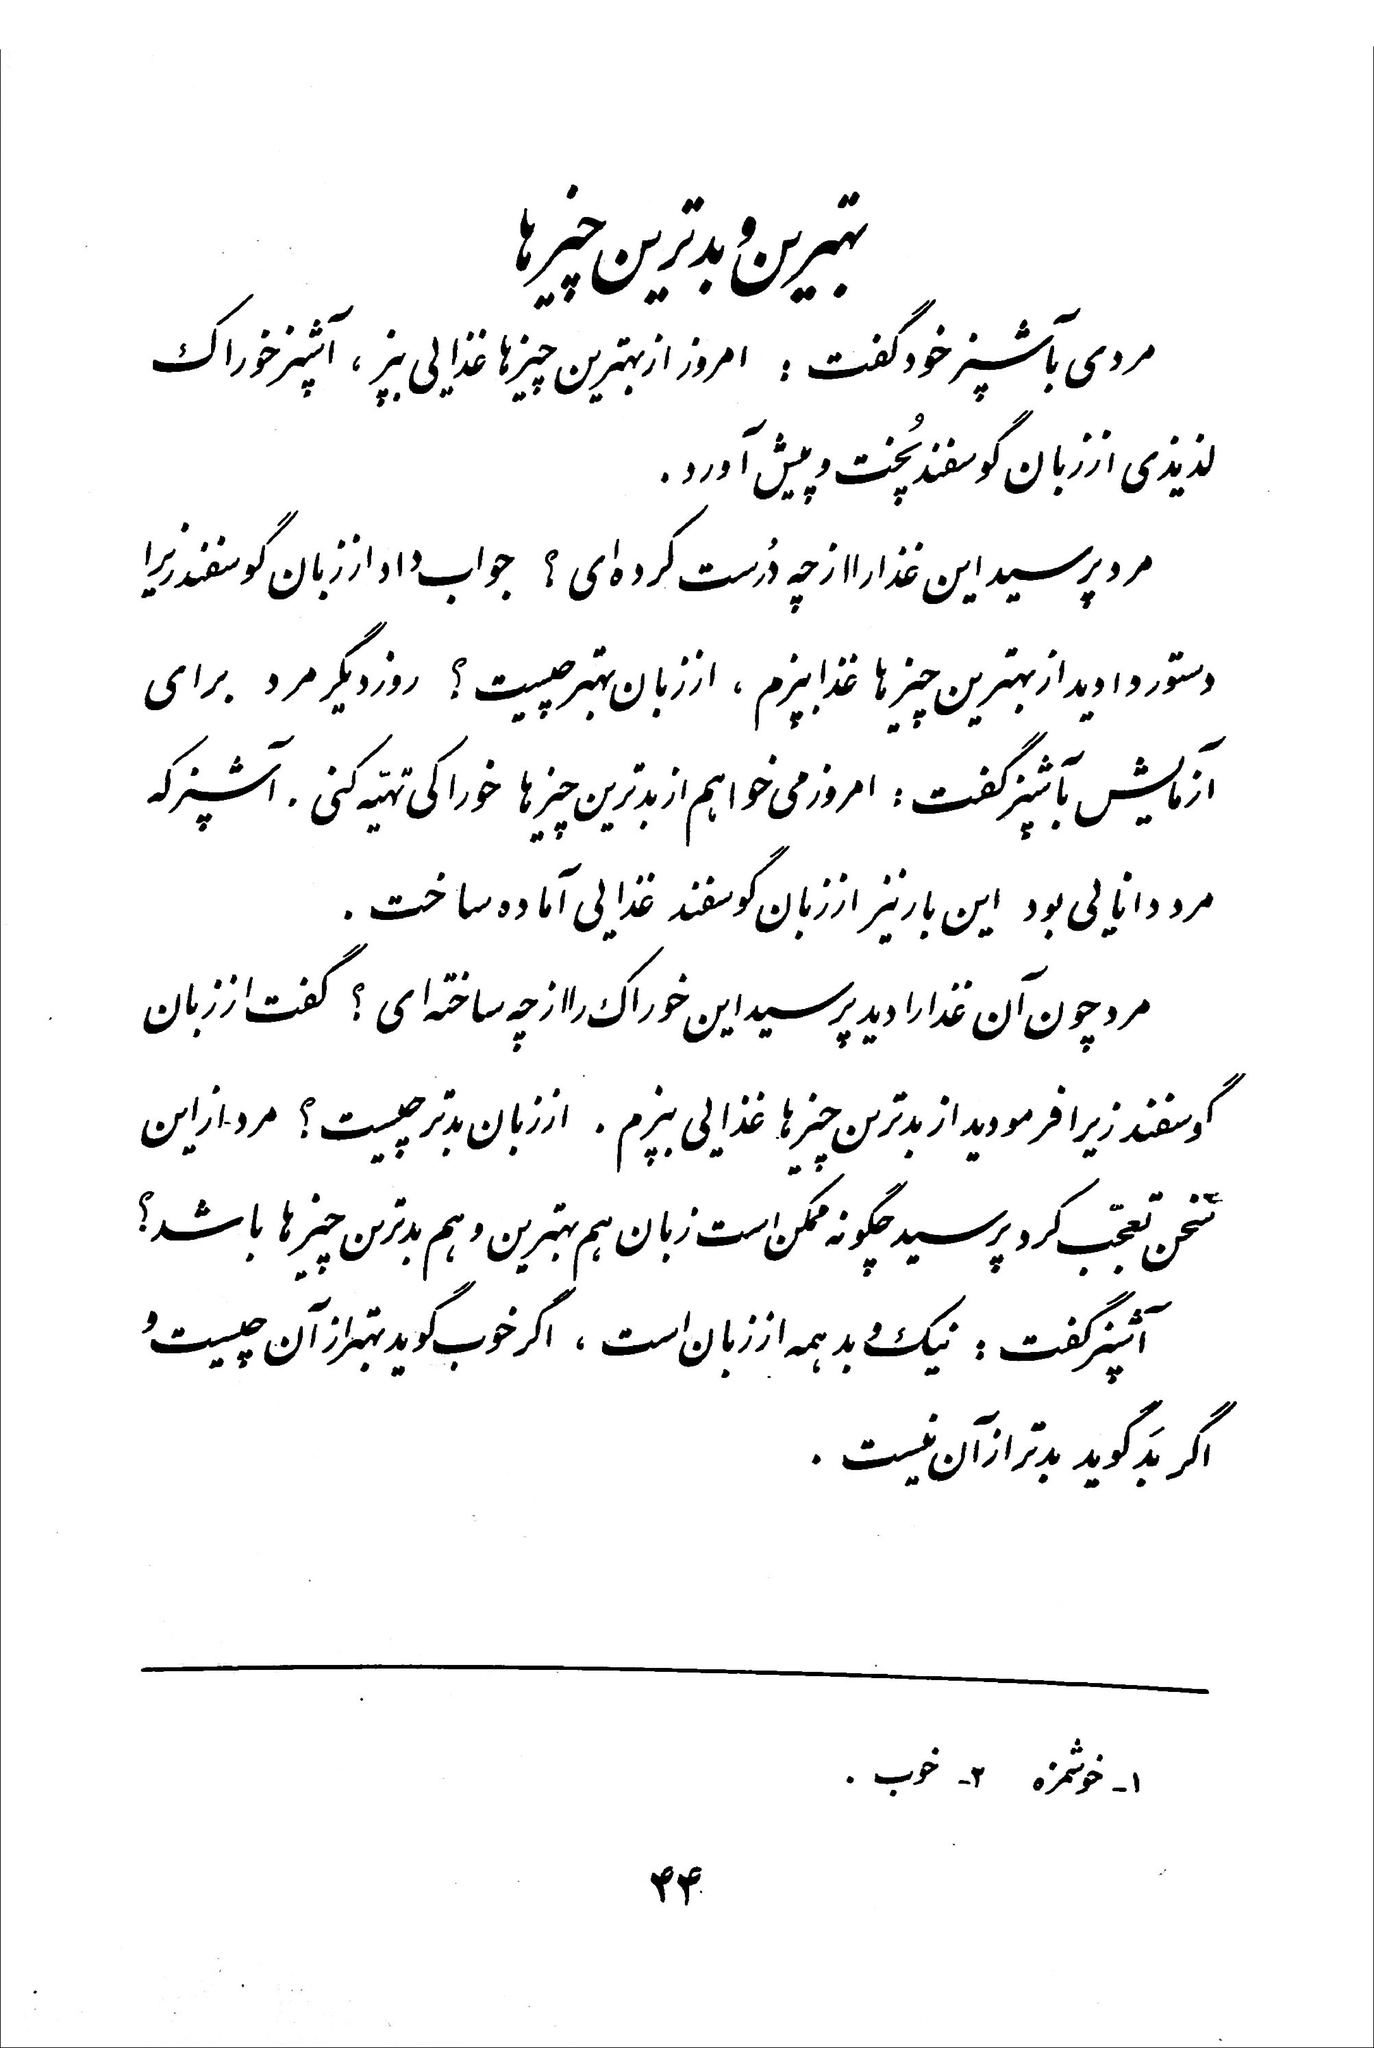 بهترین و بدترین چیزها
مردی بآشپز خود گفت : امروز از بهترین چیزها غذایی بپز ، آشپز خوراک
لذیذی از زبان گوسفند پُخت و پیش آورد .
مرد پرسید این غذا را از چه دُرست کرده‌ای ؟ جواب داد از زبان گوسفند زیرا
دستور دادید از بهترین چیزها غذا بپزم ، از زبان بهتر چیست ؟ روز دیگر مرد برای
آزمایش بآشپز گفت : امروز می خواهم از بدترین چیزها خوراکی تهیّه کنی . آشپز که
مرد دانایی بود این بار نیز از زبان گوسفند غذایی آماده ساخت .
مرد چون آن غذا را دید پرسید این خوراک را از چه ساخته ای ؟ گفت از زبان
گوسفند زیرا فرمودید از بدترین چیزها غذایی بپزم . از زبان بدتر چیست ؟ مرد از این
سخن تعجّب کرد پرسید چگونه ممکن است زبان هم بهترین و هم بدترین چیزها باشد ؟
آشپز گفت : نیک و بد همه از زبان است ، اگر خوب گوید بهتر از آن چیست و
اگر بَد گوید بدتر از آن نیست .
۱- خوشمزه ۲- خوب .
۴۴